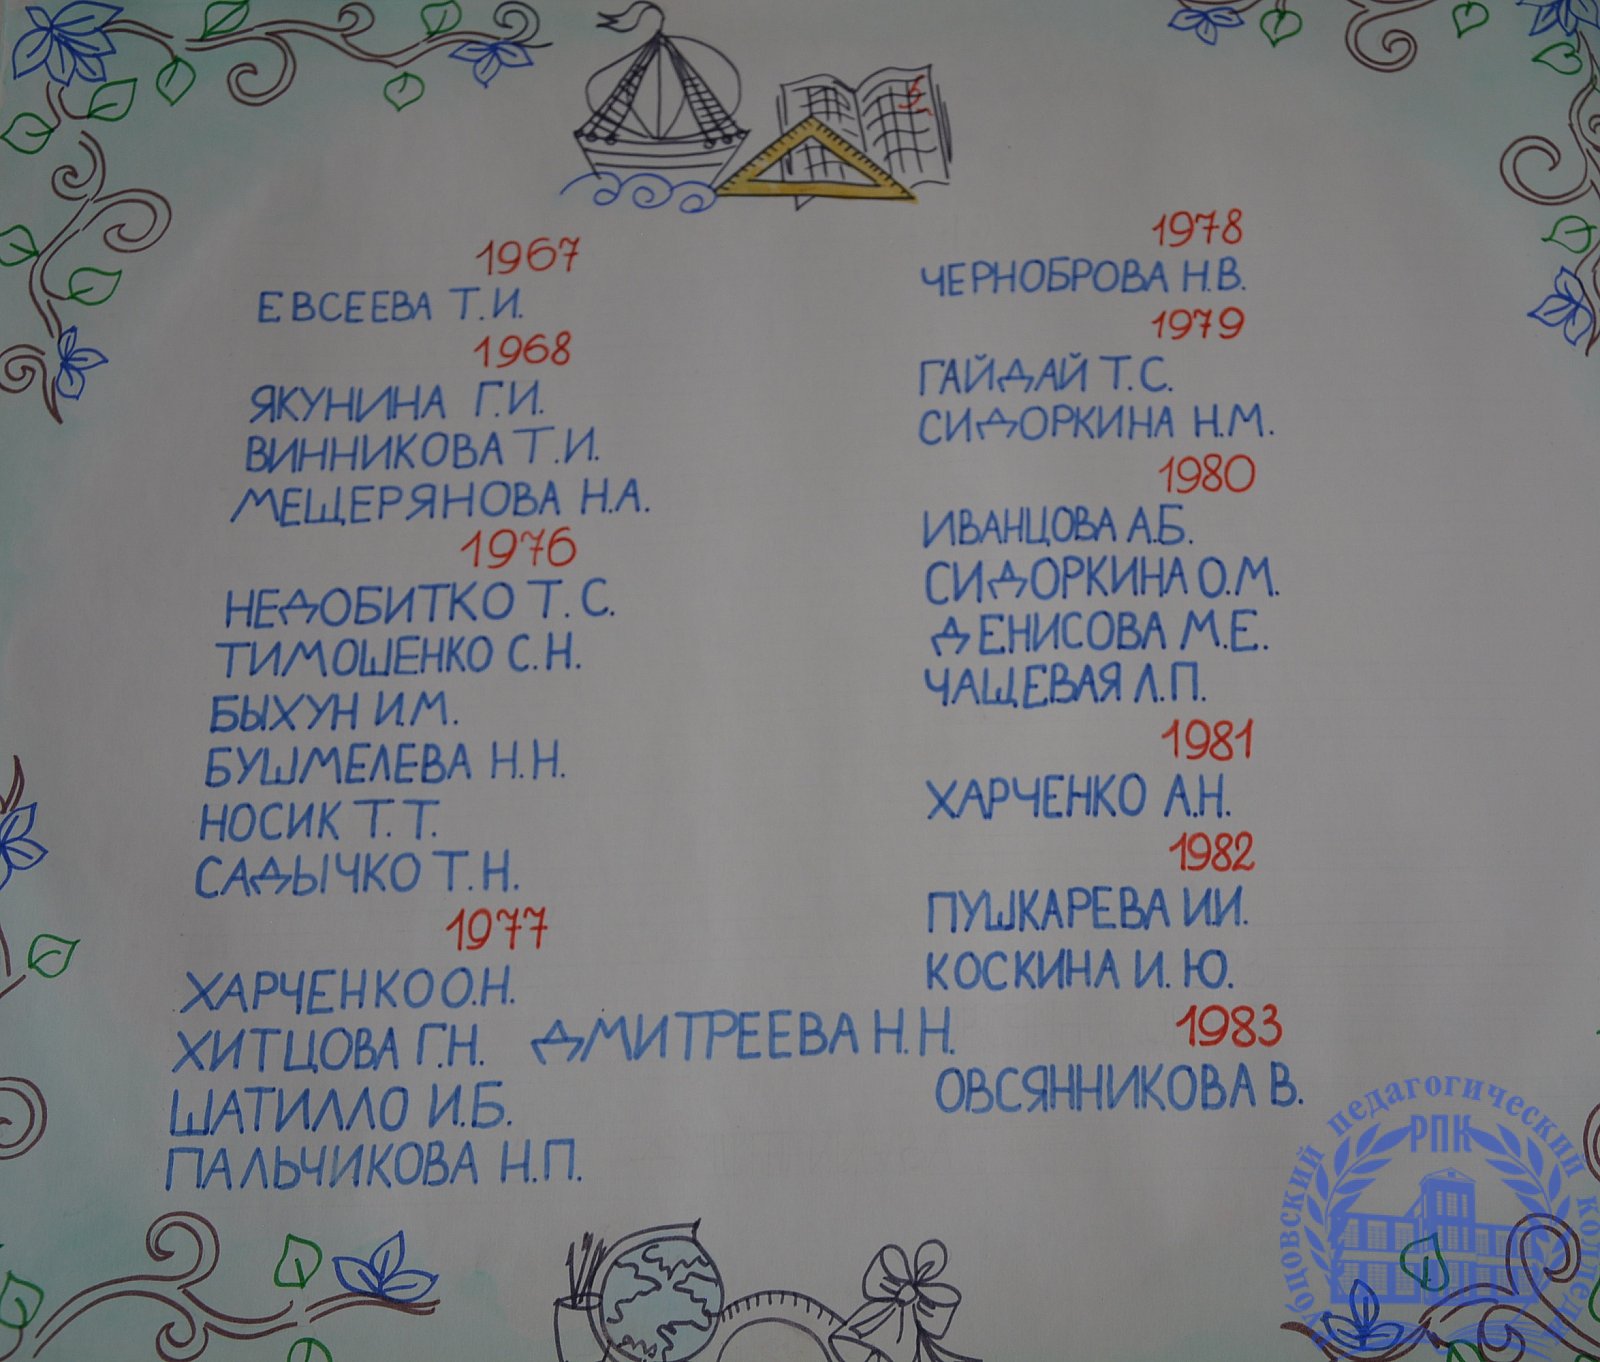 1967
ЕВСЕЕВА Т.И.
1968
ЯКУНИНА Г.И.
ВИННИКОВА Т.И.
МЕЩЕРЯНОВА Н.А.
1976
НЕДОБИТКО Т.С.
ТИМОШЕНКО С.Н.
БЫХУН И.М.
БУШМЕЛЕВА Н.Н.
НОСИК Т.Т.
САДЫЧКО Т.Н.
1977
ХАРЧЕНКО О.Н.
ХИТЦОВА Г.Н. ДМИТРЕЕВА Н.Н.
ШАТИЛЛО И.Б.
ПАЛЬЧИКОВА Н.П.
1978
ЧЕРНОБРОВА Н.В.
1979
ГАЙДАЙ Т.С.
СИДОРКИНА Н.М.
1980
ИВАНЦОВА А.Б.
СИДОРКИНА О.М.
ДЕНИСОВА М.Е.
ЧАЩЕВАЯ Л.П.
1981
ХАРЧЕНКО А.Н.
1982
ПУШКАРЕВА И.И.
КОСКИНА И.Ю.
1983
ОВСЯННИКОВА В.
педагогический
РПК